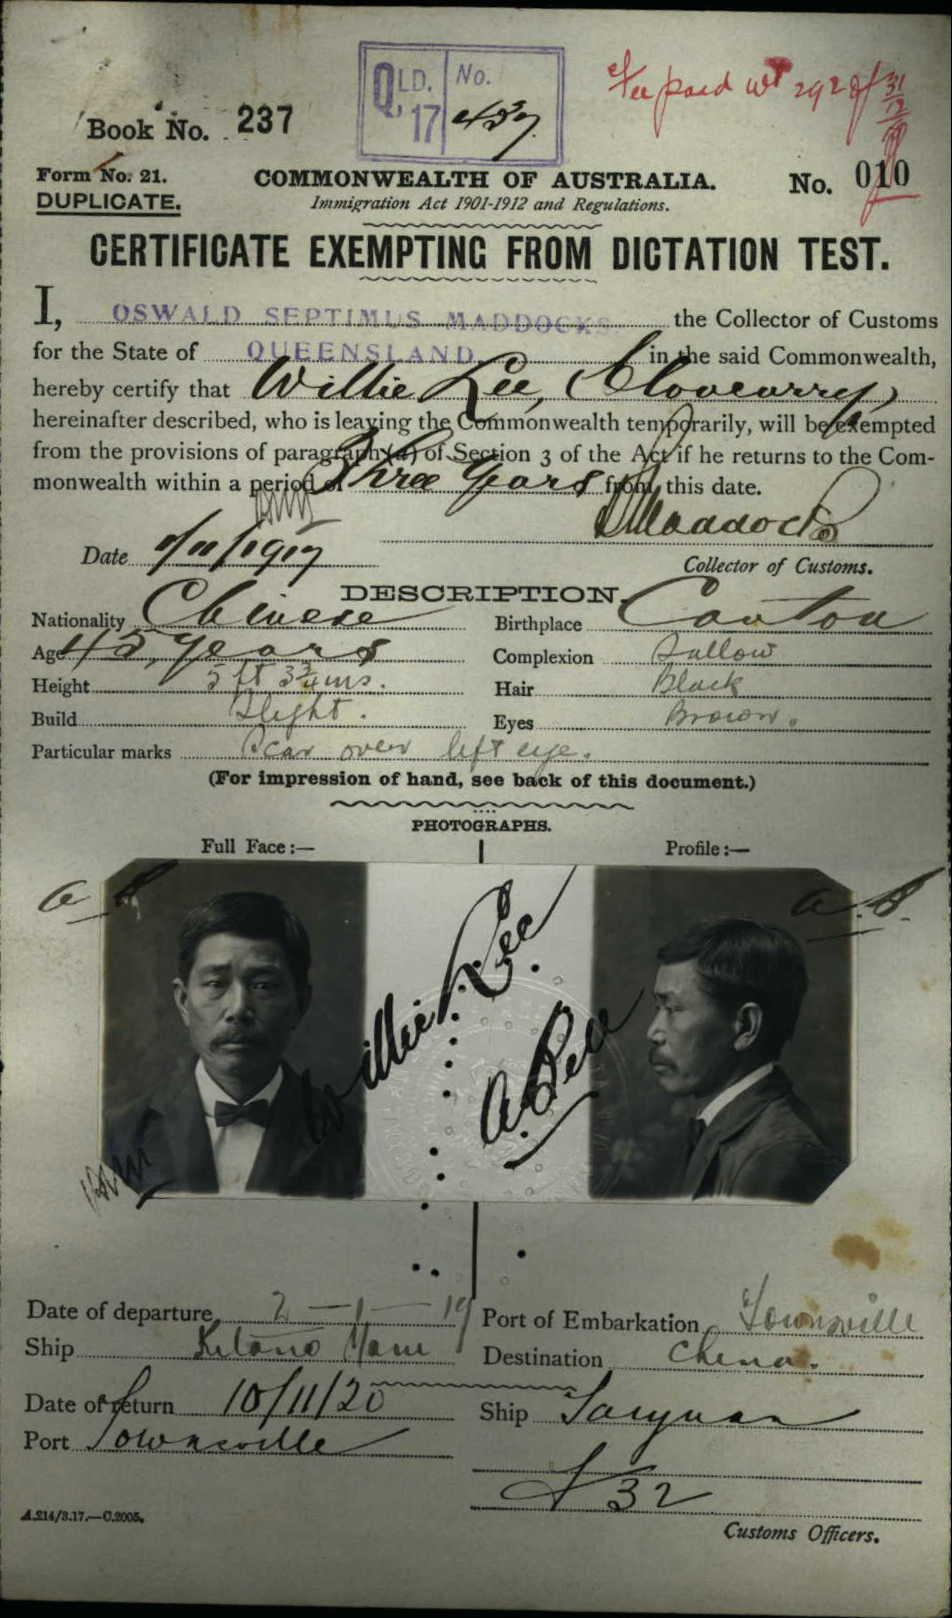 Book No. 237
QLD. No.
Q, 17 437
Fee paid
Form No. 21.
DUPLICATE.
COMMONWEALTH OF AUSTRALIA.
Immigration Act 1901-1912 and Regulations.
No. 010
CERTIFICATE EXEMPTING FROM DICTATION TEST.
I, OSWALD SEPTIMUS MADDOCKS the Collector of Customs
for the State of QUEENSLAND in the said Commonwealth,
hereby certify that Willie Lee, (Cloncurry)
hereinafter described, who is leaving the Commonwealth temporarily, will be exempted
from the provisions of paragraph (a) of Section 3 of the Act if he returns to the Com-
monwealth within a period of Three Years from this date.
Maddocks
Date 1/11/1917
Collector of Customs.
DESCRIPTION.
Nationality Chinese Birthplace Canton
Age 45 years Complexion Sallow
Height 5 ft 3 3/4 ins. Hair Black
Build Slight. Eyes Brown.
Particular marks Scar over left eye.
(For impression of hand, see back of this document.)
PHOTOGRAPHS.
Full Face :— Profile :—
Willie Lee
Date of departure 2 – 1 – 19 Port of Embarkation Townsville
Ship Kitano Maru Destination China.
Date of return 10/11/20 Ship Taiyuan
Port Townsville
32
A.214/3.17.—C.2005.
Customs Officers.